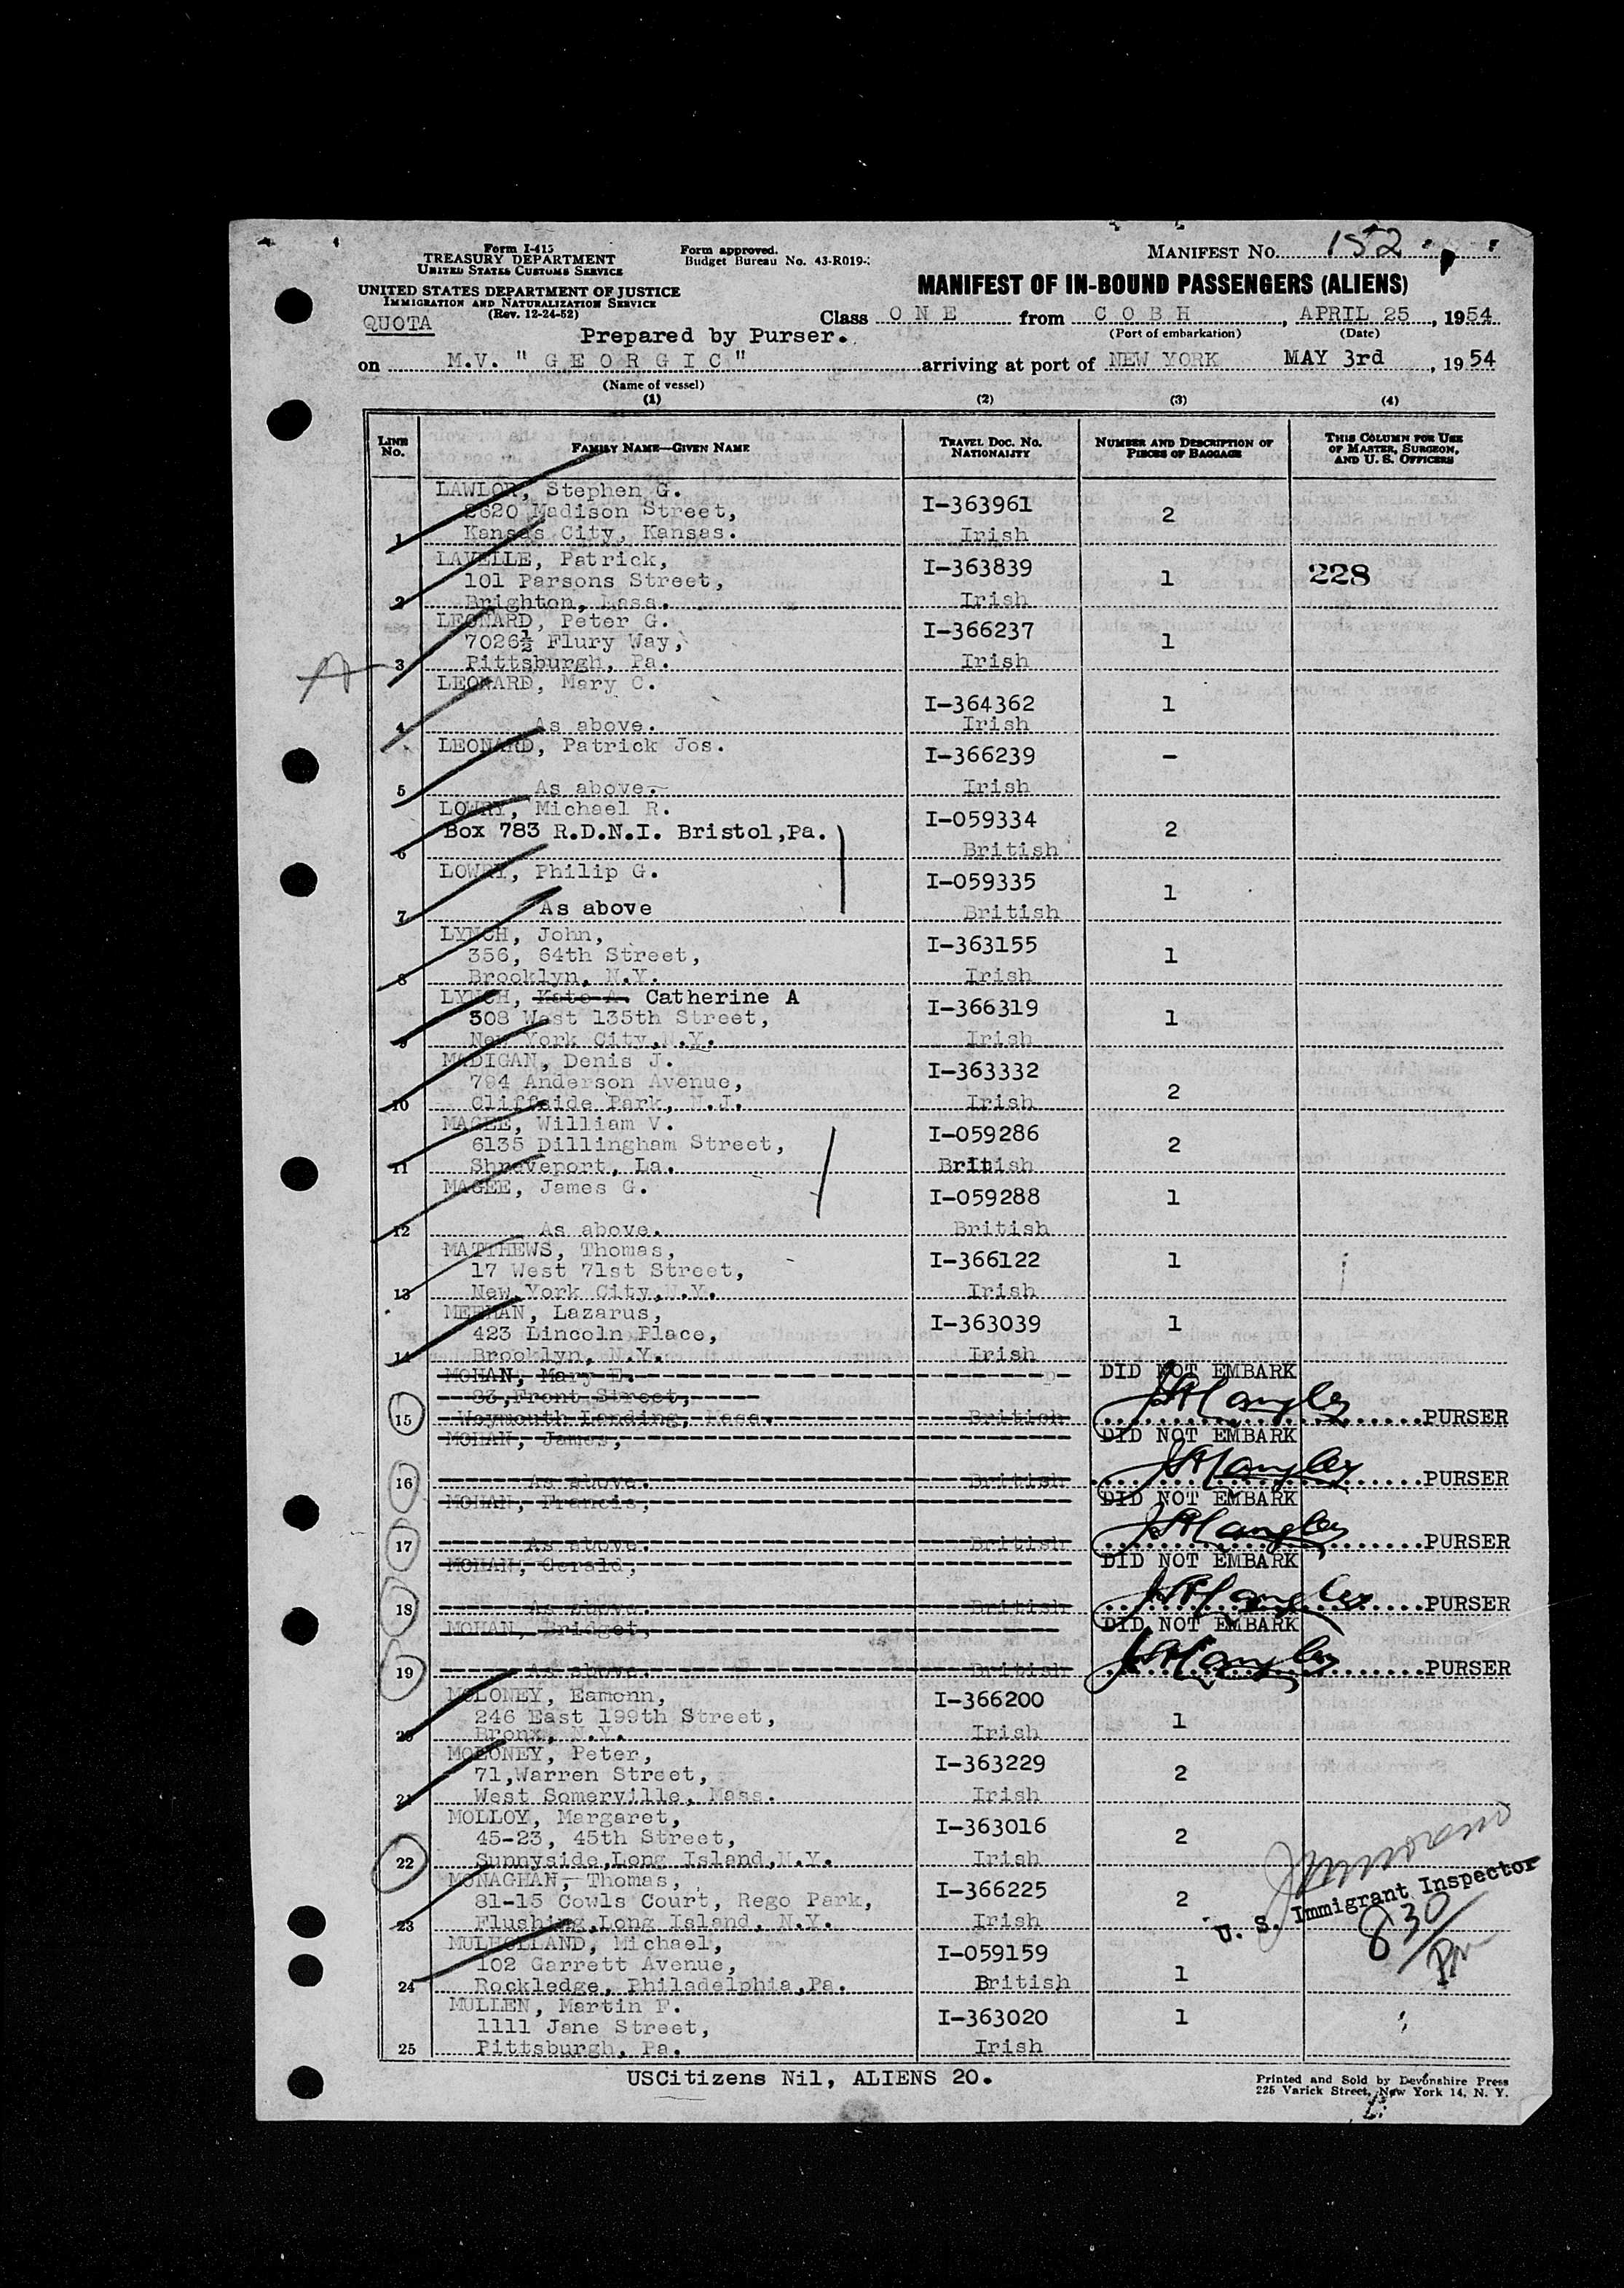 Form I-415
TREASURY DEPARTMENT
UNITED STATES CUSTOMS SERVICE
Form approved.
Budget Bureau No. 43-R019-
MANIFEST No. 152
UNITED STATES DEPARTMENT OF JUSTICE
IMMIGRATION AND NATURALIZATION SERVICE
(Rev. 12-24-52)
MANIFEST OF IN-BOUND PASSENGERS (ALIENS)
QUOTA
Prepared by Purser.
Class ONE from COBH, APRIL 25, 1954
(Port of embarkation) (Date)
on M.V. "GEORGIC" arriving at port of NEW YORK MAY 3rd, 1954
(Name of vessel)
(1) (2) (3) (4)
LINE No. FAMILY NAME—GIVEN NAME TRAVEL DOC. NO. NATIONALITY NUMBER AND DESCRIPTION OF PIECES OF BAGGAGE THIS COLUMN FOR USE OF MASTER, SURGEON, AND U. S. OFFICERS
LAWLOR, Stephen G. I-363961 2
2620 Madison Street,
1 Kansas City, Kansas. Irish
LAVELLE, Patrick, I-363839 1 228
101 Parsons Street,
2 Brighton, Mass. Irish
LEONARD, Peter G. I-366237 1
7026½ Flury Way,
3 Pittsburgh, Pa. Irish
LEONARD, Mary C. I-364362 1
4 As above. Irish
LEONARD, Patrick Jos. I-366239 -
5 As above. Irish
LOWRY, Michael R. I-059334 2
Box 783 R.D.N.I. Bristol,Pa.
6 British
LOWRY, Philip G. I-059335 1
7 As above British
LYNCH, John, I-363155 1
356, 64th Street,
8 Brooklyn, N.Y. Irish
LYNCH, Kate A. Catherine A I-366319 1
508 West 135th Street,
9 New York City,N.Y. Irish
MADIGAN, Denis J. I-363332 2
794 Anderson Avenue,
10 Cliffside Park, N.J. Irish
MAGEE, William V. I-059286 2
6135 Dillingham Street,
11 Shreveport, La. British
MAGEE, James G. I-059288 1
12 As above. British
MATTHEWS, Thomas, I-366122 1
17 West 71st Street,
13 New York City,N.Y. Irish
MEEHAN, Lazarus, I-363039 1
423 Lincoln Place,
14 Brooklyn, N.Y. Irish
MOHAN, Mary E. DID NOT EMBARK
83,Front Street,
15 Weymouth Landing, Mass. British PURSER
MOHAN, James, DID NOT EMBARK
16 As above. British PURSER
MOHAN, Francis, DID NOT EMBARK
17 As above. British PURSER
MOHAN, Gerald, DID NOT EMBARK
18 As above. British PURSER
MOHAN, Bridget, DID NOT EMBARK
19 As above. British PURSER
MOLONEY, Eamonn, I-366200 1
246 East 199th Street,
20 Bronx, N.Y. Irish
MOLONEY, Peter, I-363229 2
71,Warren Street,
21 West Somerville, Mass. Irish
MOLLOY, Margaret, I-363016 2
45-23, 45th Street,
22 Sunnyside,Long Island,N.Y. Irish
MONAGHAN, Thomas, I-366225 2
81-15 Cowls Court, Rego Park,
23 Flushing,Long Island, N.Y. Irish
U. S. Immigrant Inspector
830/PM
MULHOLLAND, Michael, I-059159 1
102 Garrett Avenue,
24 Rockledge, Philadelphia,Pa. British
MULLEN, Martin F. I-363020 1
1111 Jane Street,
25 Pittsburgh, Pa. Irish
USCitizens Nil, ALIENS 20.
Printed and Sold by Devonshire Press
225 Varick Street, New York 14, N. Y.